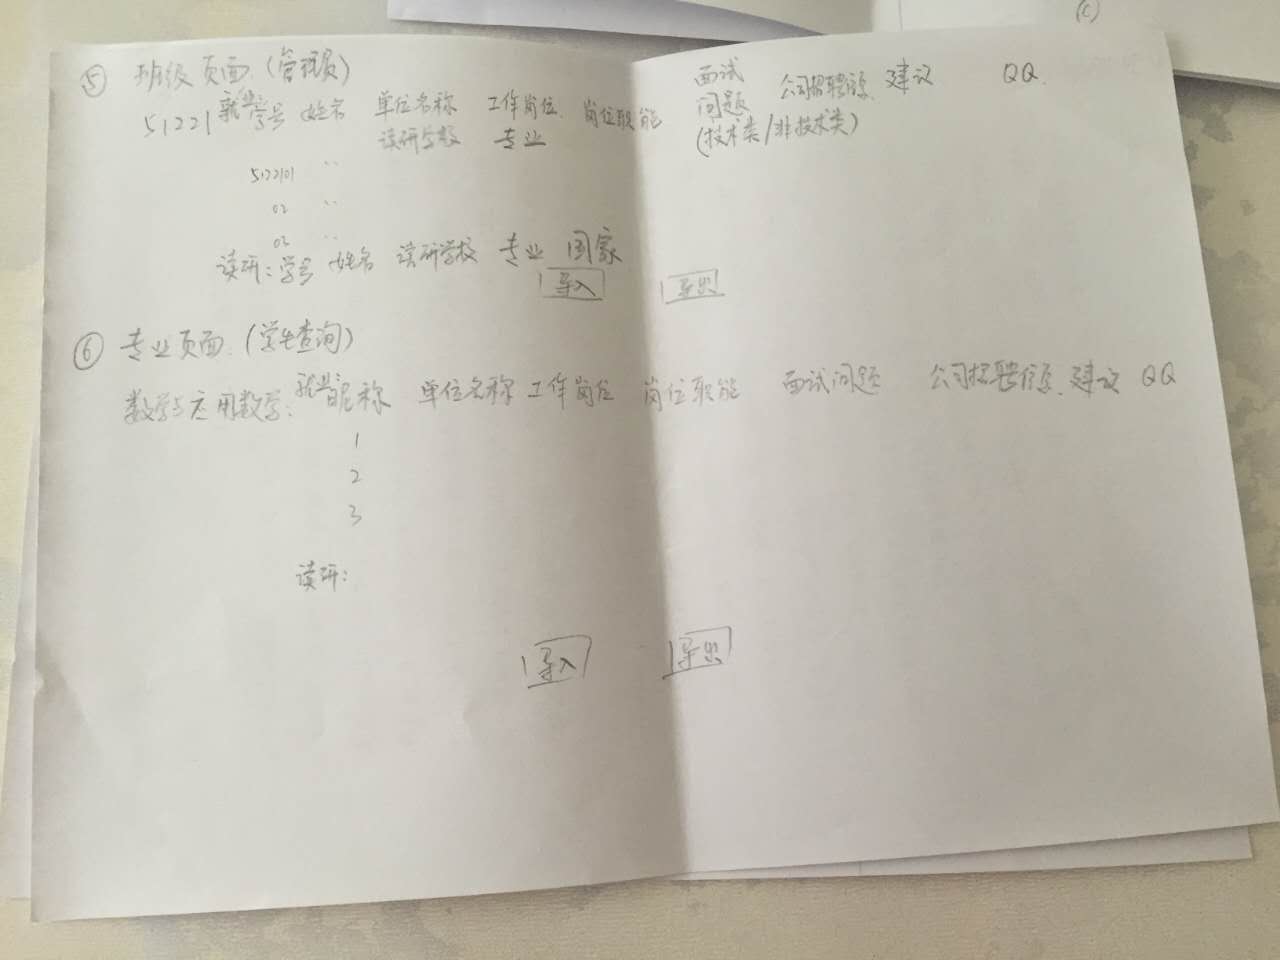 (C)
⑤ 班级页面.(管理员)
51221 就业 学号 姓名 单位名称 工作岗位. 岗位职能 面试问题(技术类/非技术类) 公司招聘源. 建议 QQ.
读研学校 专业
5122101 ''
02 ''
03 ''
读研:学号 姓名 读研学校 专业 国家
导入 导出
⑥ 专业页面.(学生查询)
数学与应用数学: 就业 昵称 单位名称 工作岗位 岗位职能 面试问题 公司招聘信源. 建议 QQ
1
2
3
读研:
导入 导出